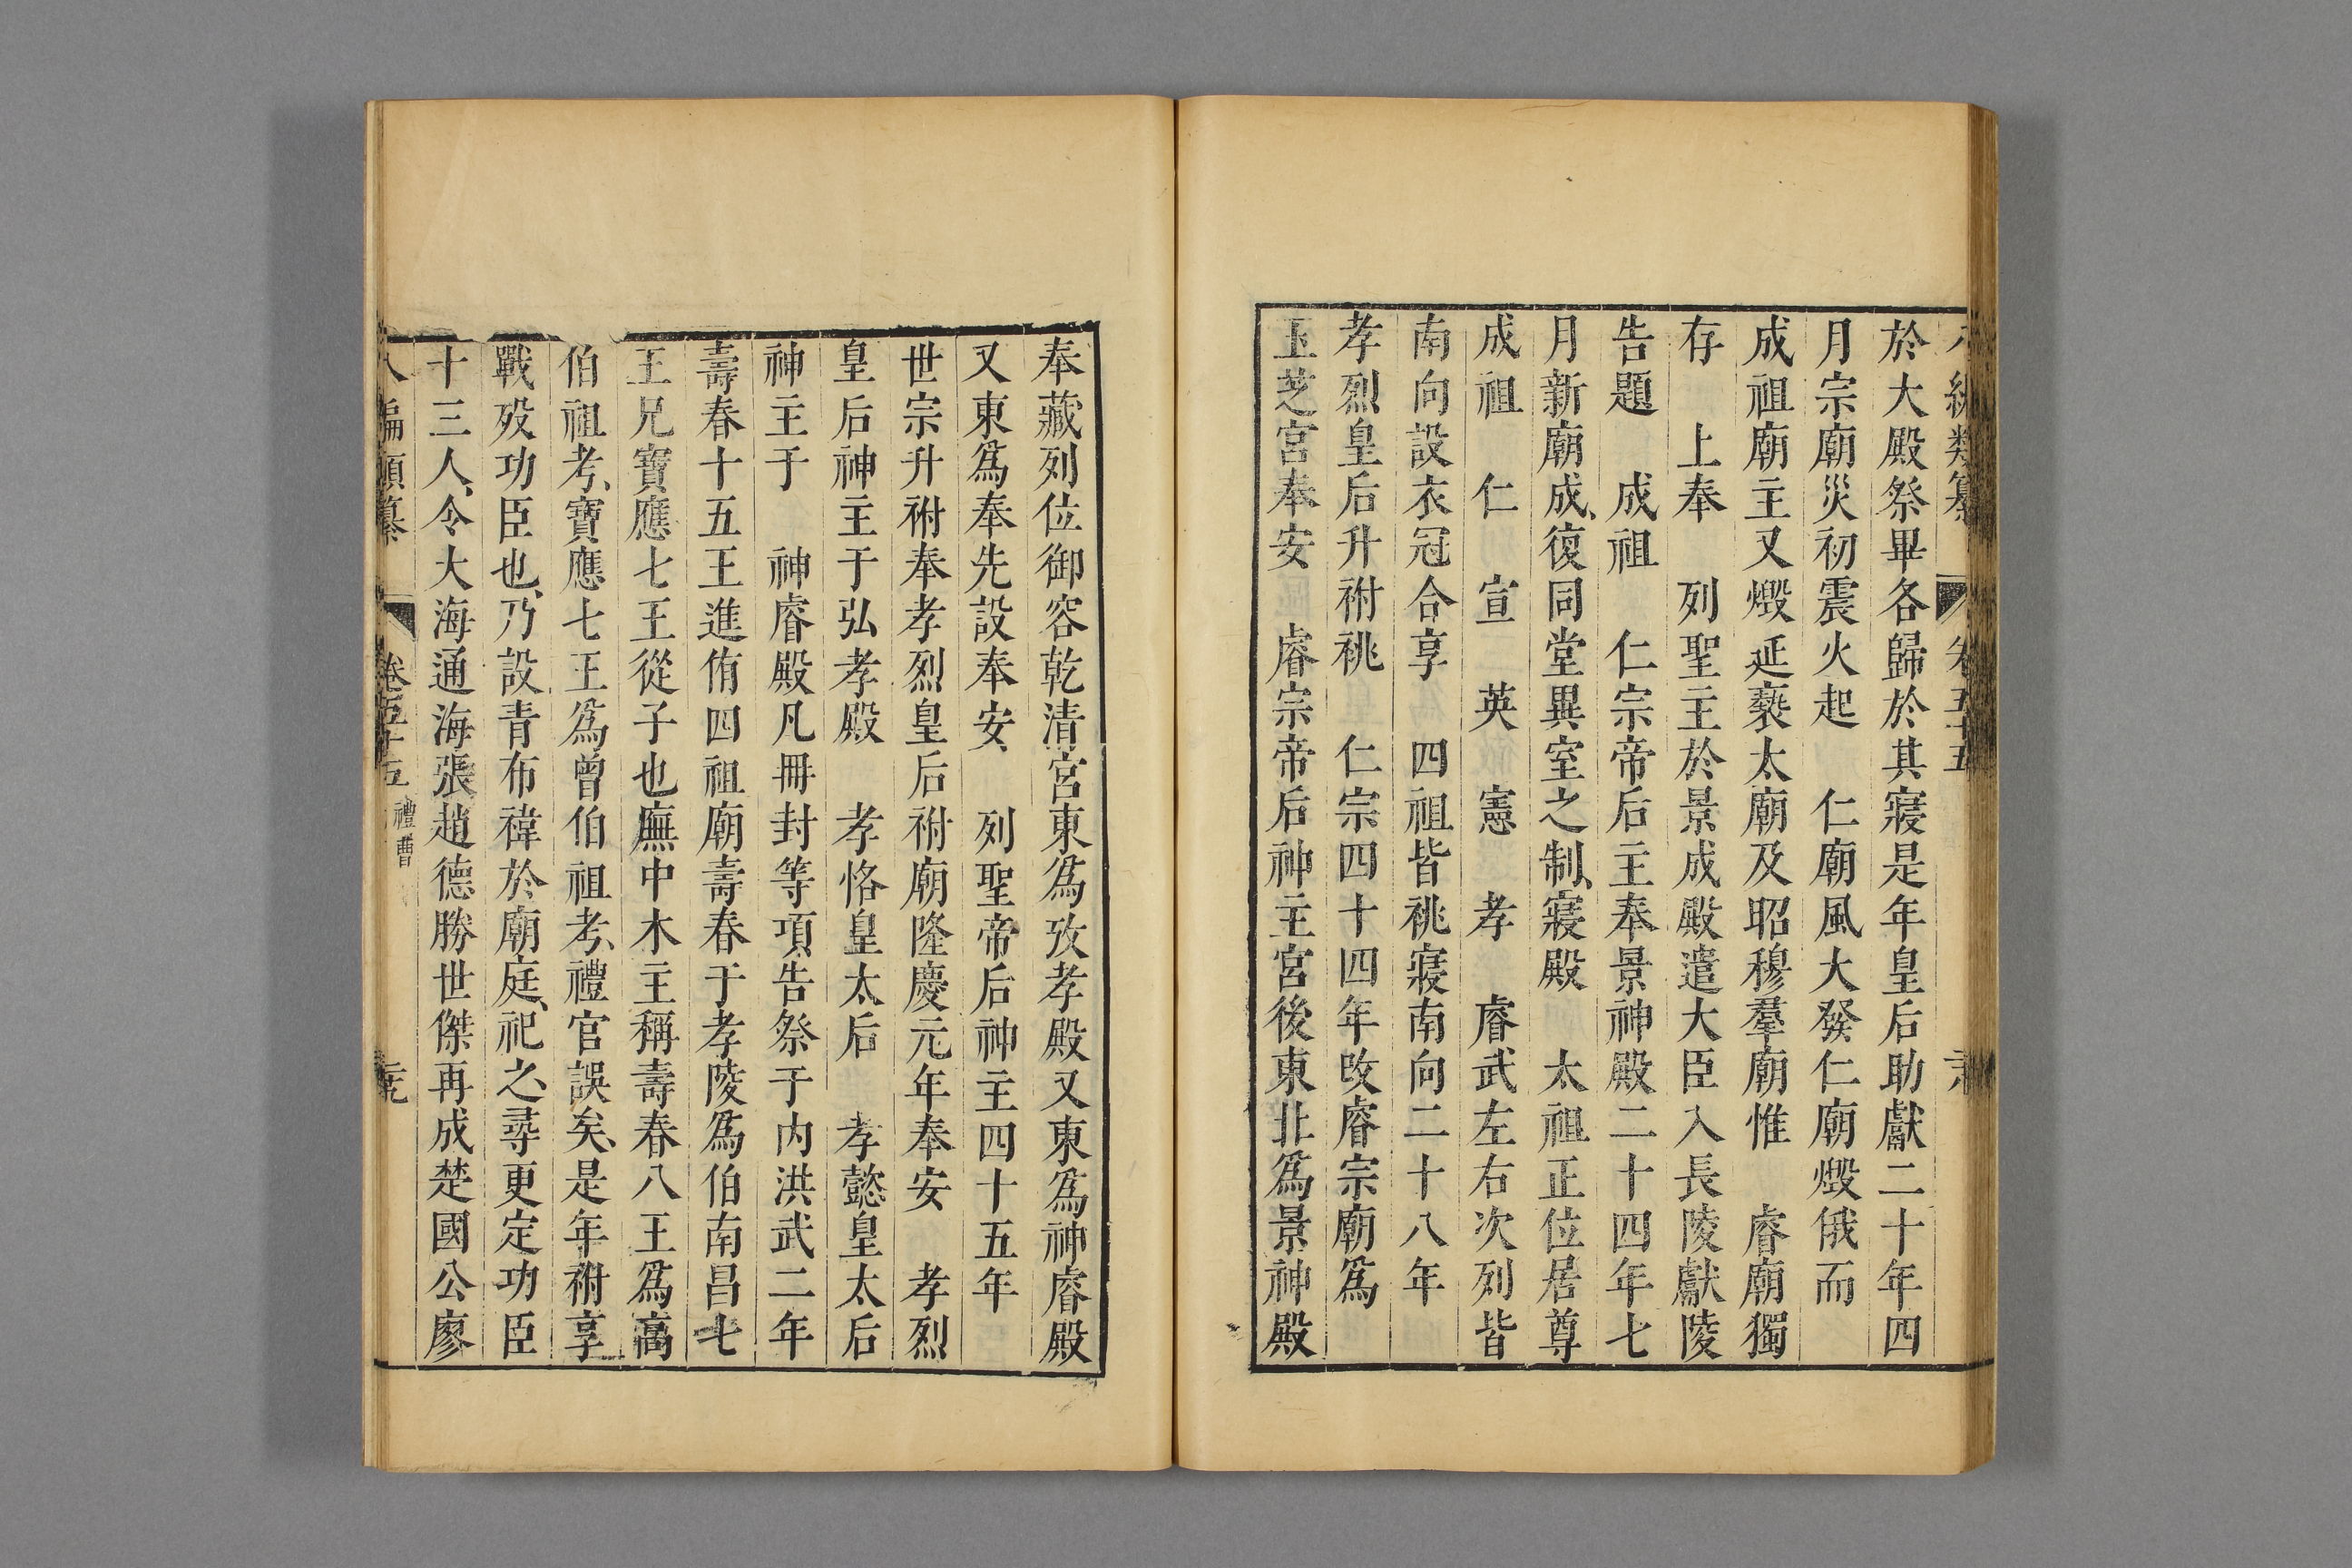 於大殿祭畢各歸於其寢是年皇后助獻二十年四
月宗廟災初震火起　仁廟風大發仁廟燬俄而
成祖廟主又燬延爇太廟及昭穆羣廟惟　睿廟獨
存　上奉　列聖主於景成殿遣大臣入長陵獻陵
告題　成祖　仁宗帝后主奉景神殿二十四年七
月新廟成、復同堂異室之制、寢殿　太祖正位居尊
成祖　仁　宣　英　憲　孝　睿武左右次列皆
南向設衣冠合享　四祖皆祧寢南向二十八年
孝烈皇后升祔祧　仁宗四十四年改睿宗廟爲
玉芝宮奉安　睿宗帝后神主宮後東北爲景神殿
奉藏列位御容乾清宮東爲孜孝殿又東爲神睿殿
又東爲奉先設奉安　列聖帝后神主四十五年
世宗升祔奉孝烈皇后祔廟隆慶元年奉安　孝烈
皇后神主于弘孝殿　孝恪皇太后　孝懿皇太后
神主于　神睿殿凡冊封等項告祭于内洪武二年
壽春十五王進侑四祖廟壽春于孝陵爲伯南昌七
王兄寶應七王從子也廡中木主稱壽春八王爲高
伯祖考、寶應七王爲曾伯祖考、禮官誤矣、是年祔享
戰歿功臣也、乃設青布褘於廟庭、祀之、尋更定功臣
十三人、令大海通海張趙德勝世傑再成楚國公廖
八編類纂　卷五十五　禮曹　二九